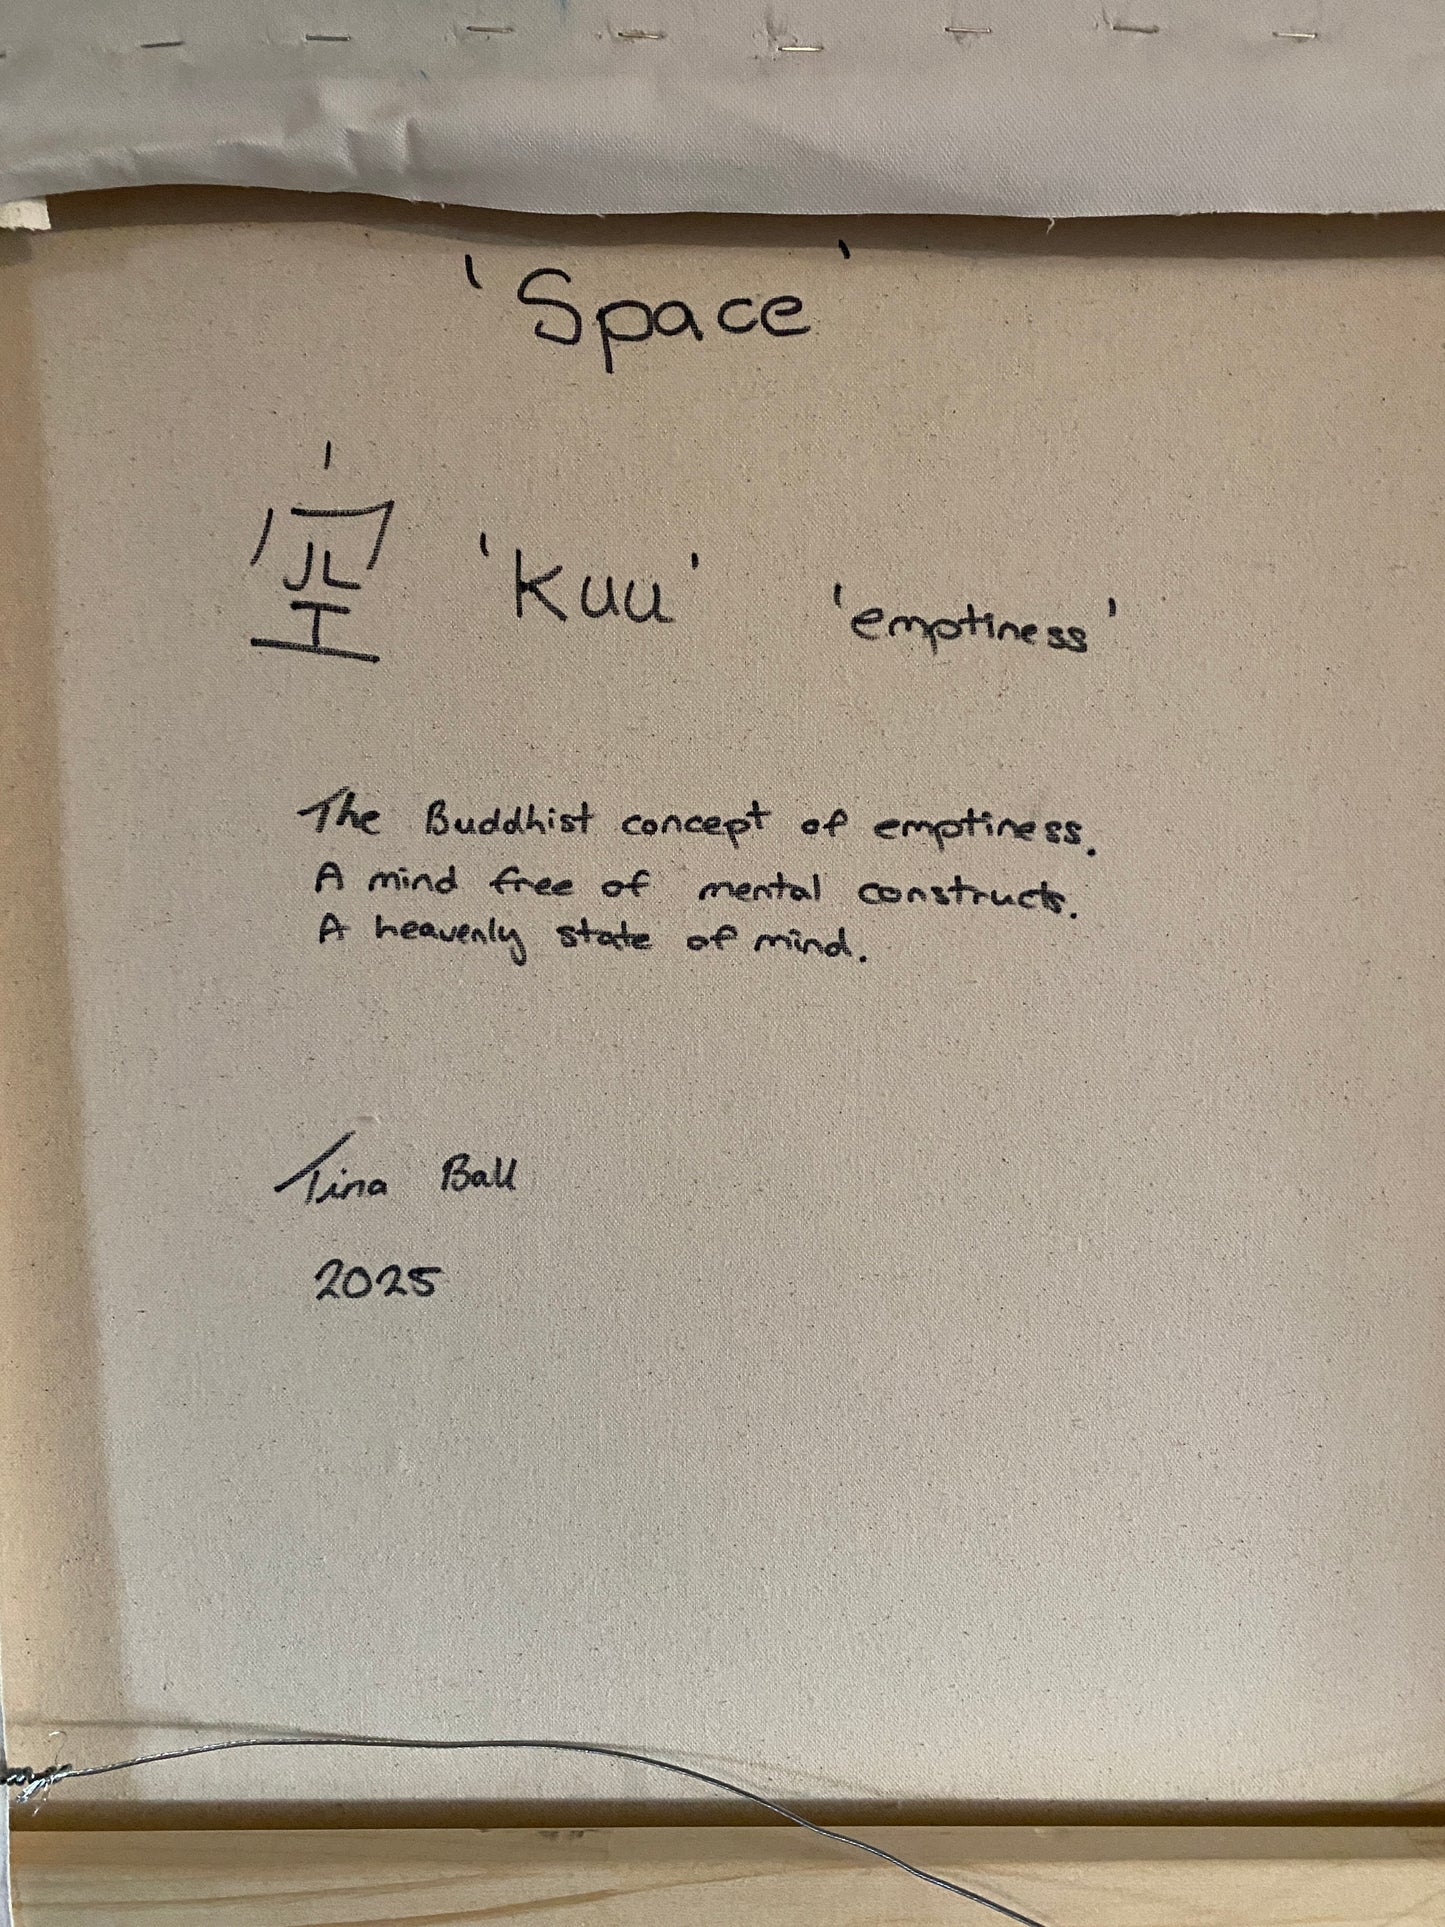 'Space'
空 'Kuu' 'emptiness'
The Buddhist concept of emptiness.
A mind free of mental constructs.
A heavenly state of mind.
Tina Ball
2025